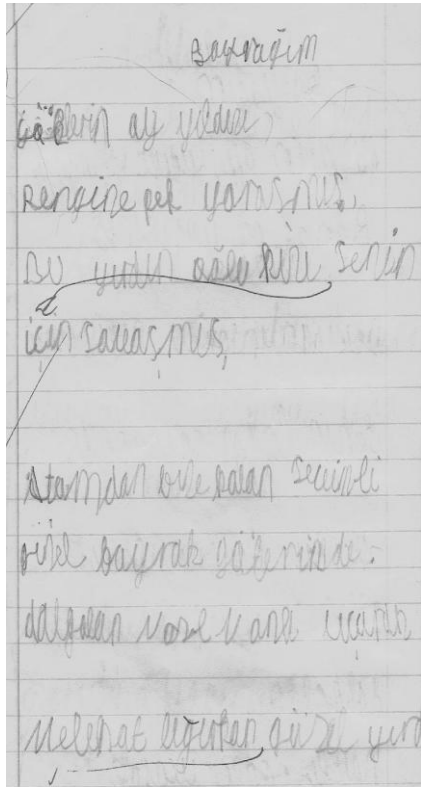 Bayrağım
Göklerin ay yıldızı
Rengine pek yaraşmış.
Bu yurdun oğlu kızı senin
için savaşmış,
Atamdan bize kalan sevimli
güzel bayrak göklerinde.
dalgalan
Melehat Uğurkan güzel yurd